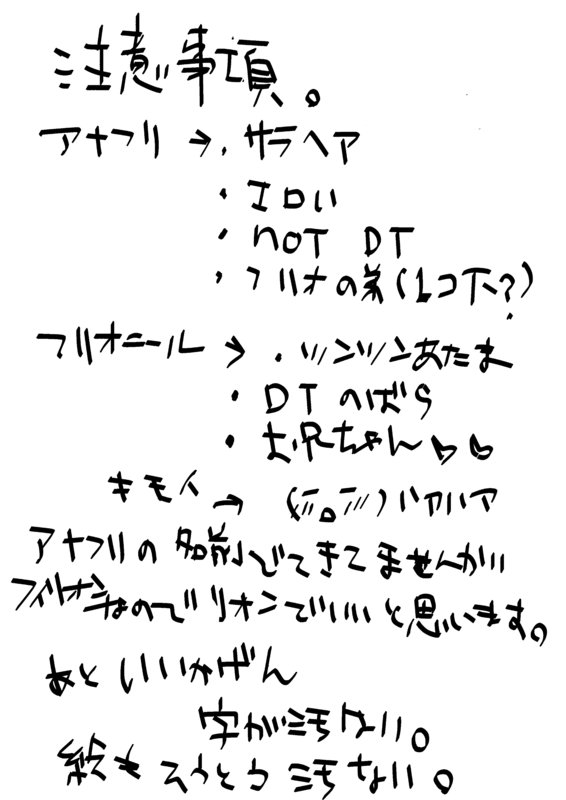 注意事項。
アナフリ→・サラヘア
・エロい
・not DT
・フリオの弟(1コ下?)
フリオニール→・ツンツンあたま
・DTのばら
・お兄ちゃん♡♡
キモイ→(ﾃﾞ。ﾃﾞ)ハアハア
アナフリの名前でてきてませんがい
フィリオンなのでリオンでいいと思います。
あといいかげん
字が汚ない。
絵もそうとう汚ない。